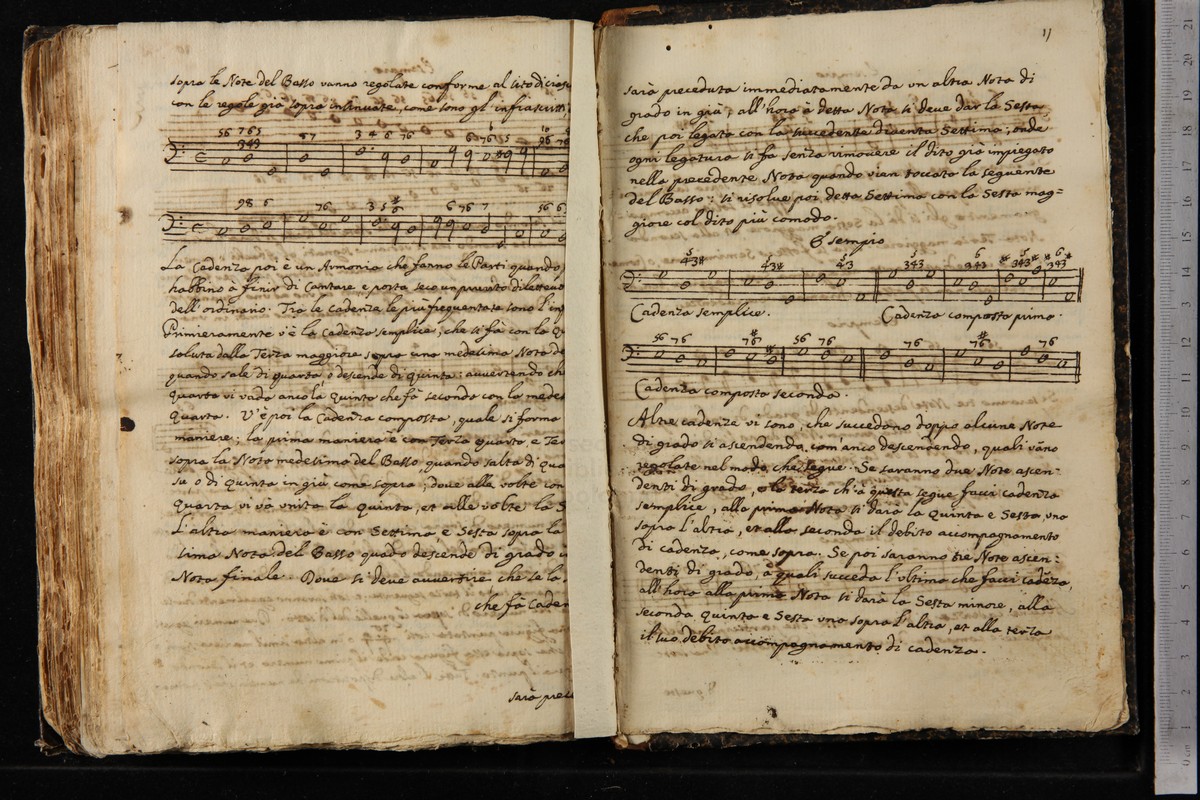 sopra le Note del Basso vanno regolate conforme al sito di
con le regole già sopra insinuate, come sono gl' infrascritti
56 765 87 3 4 6 76 6 76 5
343
98 6 76 3 5 6 6 76 7 56 6
La Cadenza poi è un Armonia che fanno le Parti quando
habbino a fenir di Cantare e porta seco un
dell' ordinario. Tra le cadenze le più frequentate sono l'
Primieramente v'è la Cadenza semplice, che si fà con la
soluta dalla Terza maggiore sopra una medesima Nota
quando sale di quarta, o descende di quinta: avvertendo
quarta vi vada anco la Quinta che fà seconda con la
Quarta. V'è poi la Cadenza composta, quale si forma
maniere; la prima maniera è con Terza quarta, e
sopra la Nota medesima del Basso quando salta di
su, o di Quinta in giù come sopra; dove alle volte con
Quarta vi và unita la Quinta, et alle volte la
L'altra maniera è con Settima e Sesta sopra la
sima Nota del Basso quãdo descende di grado
Nota finale. Dove si deve avvertire, che se la
che fà
sarà
11
sarà preceduta immediatamente da un altra Nota di
grado in giù, all'hora à detta Nota si deve dar la Sesta,
che poi legata con la succedente diventa Settima, onde
ogni legatura si fa senza rimovere il dito già impiegato
nella precedente Nota quando vien toccata la seguente
del Basso: si risolve poi detta Settima con la Sesta mag=
giore col dito più comodo.
Essempio
5 5 5 5 6 5 6
43# 43# 43 343 343 343 343
Cadenza semplice. Cadenza composta prima.
56 76 76 56 76 76 76 76
Cadenza composta seconda.
Altre cadenze vi sono, che succedono doppo alcune Note
di grado sì ascendendo, com'anco descendendo, quali vãno
regolate nel modo, che segue. Se saranno due Note ascen-
denti di grado, e la terza ch'à questa segue facci cadenza
semplice, alla prima Nota si darà la Quinta e Sesta una
sopra l'altra, et alla seconda il debito accompagnamento
di cadenza, come sopra. Se poi saranno tre Note ascen:
denti di grado, à quali succeda l'ultima che facci cadẽza,
all'hora alla prima Nota si darà la Sesta minore, alla
seconda Quinta e Sesta una sopra l'altra, et alla terza
il suo debito accompagnamento di cadenza.